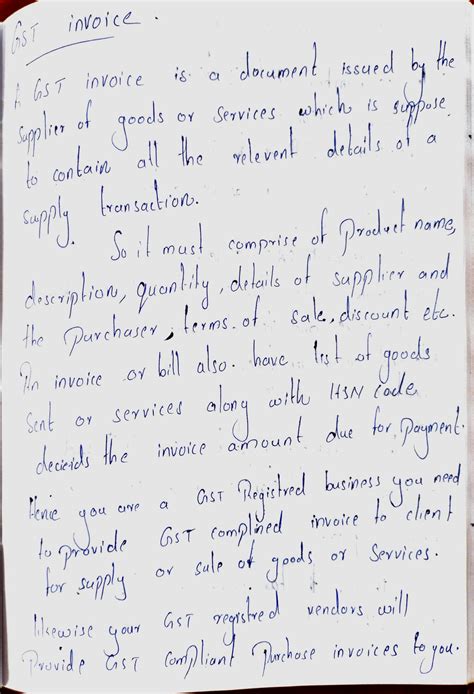 GST invoice.
A GST invoice is a document issued by the
supplier of goods or services which is suppose
to contain all the relevent details of a
supply transaction.
So it must comprise of Product name,
description, quantity, details of supplier and
the Purchaser, terms of sale, discount etc.
An invoice or bill also have list of goods
sent or services along with HSN code
decieds the invoice amount due for Payment.
Henie you are a GST Registred business you need
to provide GST complined invoice to client
for supply or sale of goods or services.
likewise your GST registred vendors will
Provide GST Compliant Purchase invoices to you.